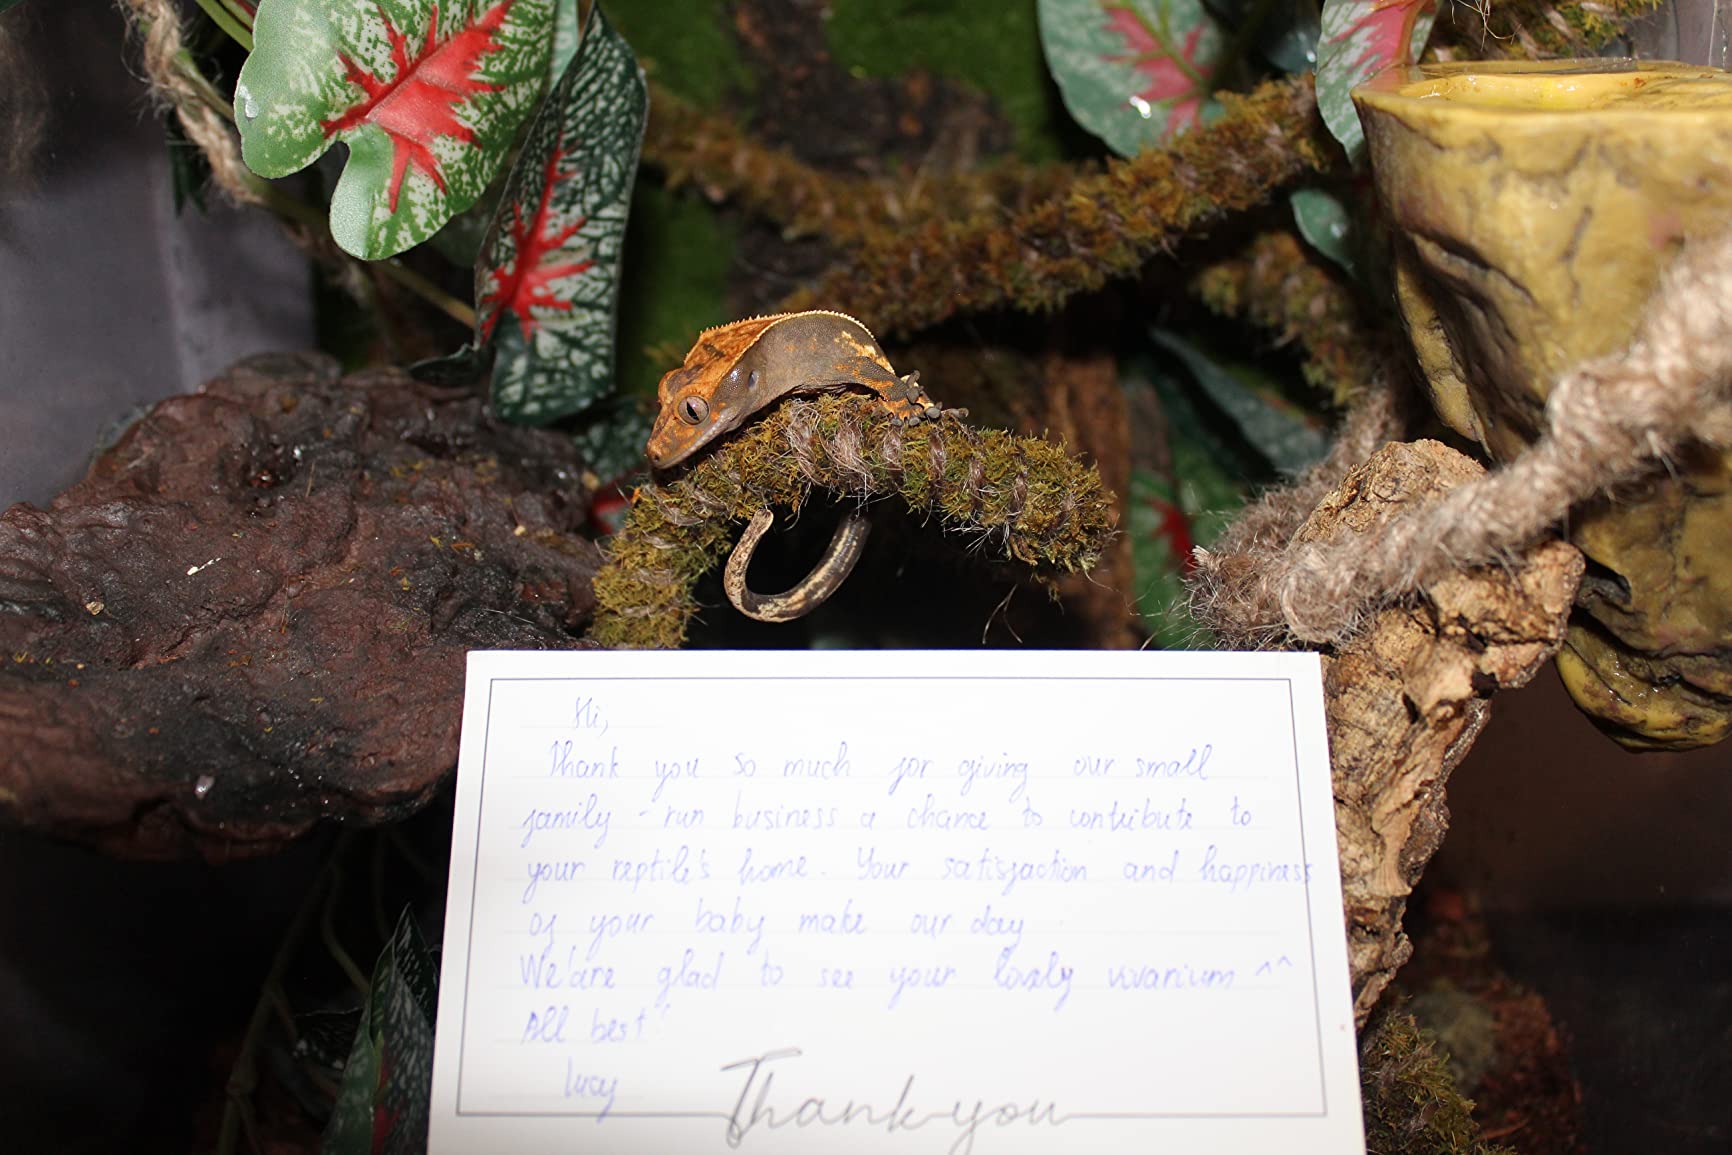 Hi,
Thank you so much for giving our small
family - run business a chance to contribute to
your reptile's home. Your satisfaction and happiness
of your baby make our day
We're glad to see your lovely vivarium ^^
All best!
Lucy
Thank you